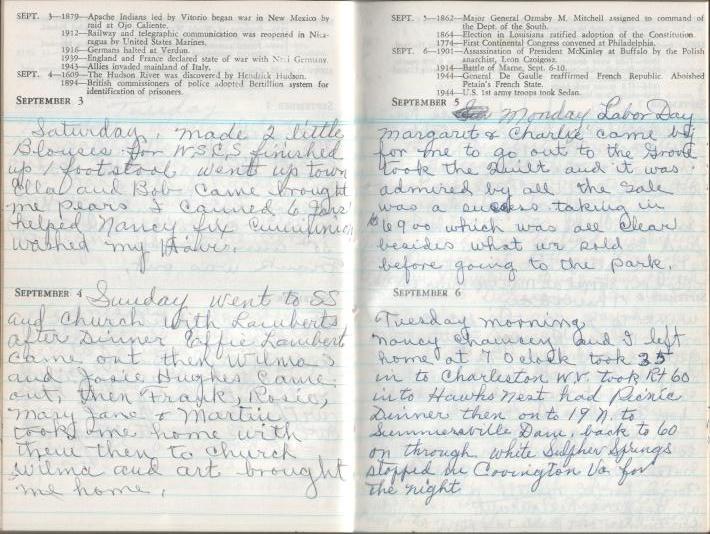 SEPT. 3—1879—Apache Indians led by Vitorio began war in New Mexico by
raid at Ojo Caliente.
1912—Railway and telegraphic communication was reopened in Nica-
ragua by United States Marines.
1916—Germans halted at Verdun.
1939—England and France declared state of war with Nazi Germany.
1943—Allies invaded mainland of Italy.
SEPT. 4—1609—The Hudson River was discovered by Hendrick Hudson.
1894—British commissioners of police adopted Bertillon system for
identification of prisoners.
SEPTEMBER 3
Saturday, made 2 little
Blouses for W.S.C.S finished
up 1 footstool went up town
Ella and Bob came brought
me pears I canned 6 Jars
helped Nancy fix
washed my Hair.
SEPTEMBER 4 Sunday went to SS
and church with Lamberts
after Dinner Effie Lambert
came out then Wilma
and Josie Hughes came
out, then Frank, Rosie,
Mary Jane & Martin
took me home with
them then to church
Wilma and art brought
me home.
SEPT. 5—1862—Major General Ormsby M. Mitchell assigned to command of
the Dept. of the South.
1864—Election in Louisiana ratified adoption of the Constitution.
1774—First Continental Congress convened at Philadelphia.
SEPT. 6—1901—Assassination of President McKinley at Buffalo by the Polish
anarchist, Leon Czolgosz.
1914—Battle of Marne, Sept. 6-10.
1944—General De Gaulle reaffirmed French Republic. Abolished
Petain's French State.
1944—U.S. 1st army troops took Sedan.
SEPTEMBER 5
Monday Labor Day
Margaret & Charlie came by
for me to go out to the Grove
took the Quilt and it was
admired by all the Sale
was a success taking in
which was all Clear
besides what we sold
before going to the park.
SEPTEMBER 6
Tuesday morning
Nancy Chauncey and I left
home at 7 Oclock took 35
in to Charleston W.V. took Rt 60
into Hawks Nest had Picnic
Dinner then onto 19 N. to
Summersville Dam, back to 60
on through white Sulpher Springs
stopped in Covington Va for
the night